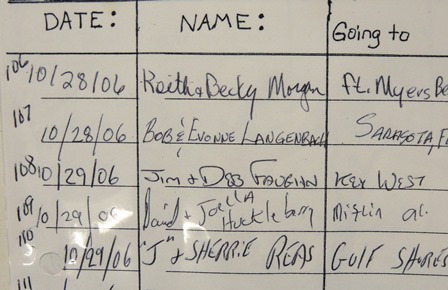 DATE: NAME: Going to
106 10/28/06 Keith & Becky Morgan Ft. Myers Be
107 10/28/06 BOB & EVONNE LANGENBACH SARASOTA, FL
108 10/29/06 Jim & DEB VAUGHN KEY WEST
109 10/29/06 David & Joella Huckleberry Mifflin al.
110 10/29/06 "J" & SHERRIE REAS GULF SHORES
111